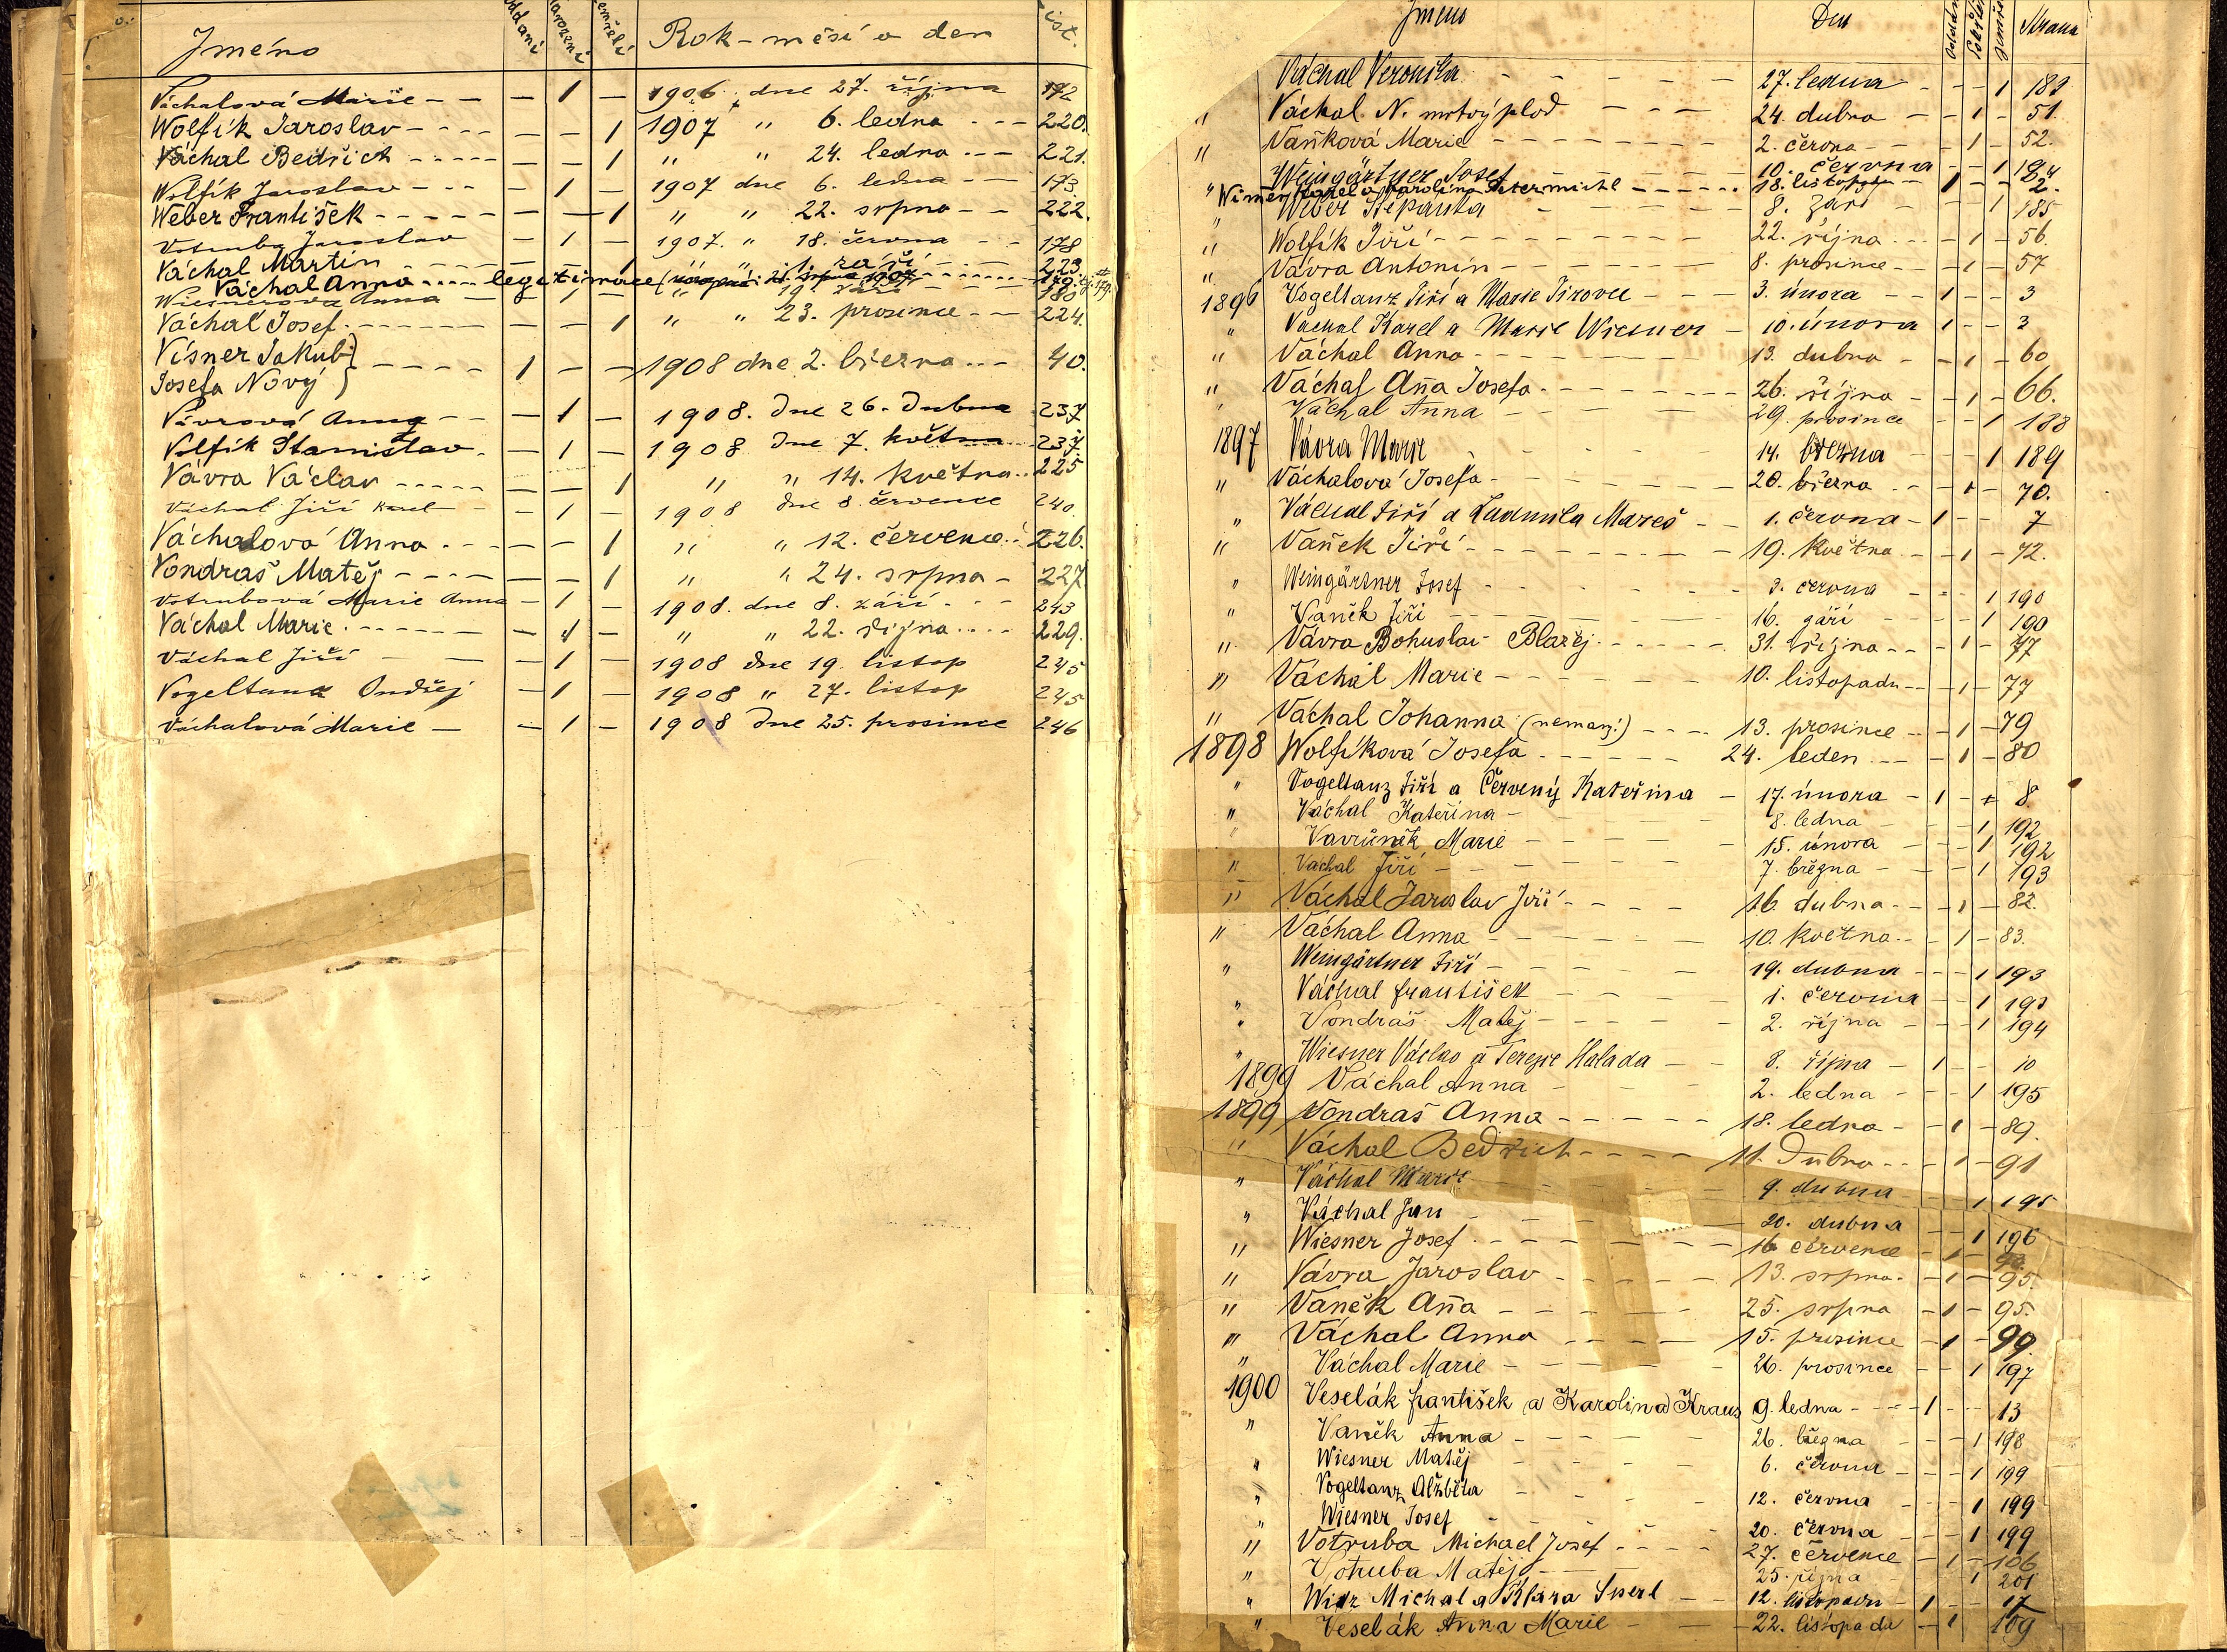 Jméno oddaní narození zemřelí Rok - měsí a den list.
Váchalová Marie - - - 1 - 1906. dne 27. října 172
Wolfík Jaroslav - - - - - - 1 1907 " 6. ledna - - - 220.
Váchal Bedřich - - - - - - - 1 " " 24. ledna - - - 221.
Wolfík Jaroslav - - - - 1 - 1907 dne 6. ledna - - - 173
Weber František - - - - - - 1 " " 22. srpna - - 222.
Votruba Jaroslav - 1 - 1907. " 18. června - - 178
Váchal Martin 1. září 223
Váchal Anna - - - - legitimace
Wiesnerova Anna - 1 - " 19. září 180
Váchal Josef - - - - - - - - 1 " " 23. prosince - - 224.
Vísner Jakub }
Josefa Nový } - - - - 1 - - 1908 dne 2. března - - - 40.
Vávrová Anna - - - 1 - 1908. dne 26. dubna 237
Volfík Stanislav - - 1 - 1908 dne 7. května 237.
Vávra Václav - - - - - - - 1 " " 14. května - - 225
Váchal Jiří Karel - - 1 - 1908 dne 8. července 240.
Váchalová Anna - - - - - 1 " " 12. července 226.
Vondraš Matěj - - - - - - 1 " " 24. srpna - 227
Votrubová Marie Anna - 1 - 1908. dne 8. září - - - 243
Váchal Marie - - - - - - - 1 - " " 22. října - - - - 229.
Váchal Jiří - - - 1 - 1908 dne 19. listop 245
Vogeltanz Ondřej - 1 - 1908 " 27. listop 245
Váchalová Marie - - 1 - 1908 dne 25. prosince 246
Jméno Den Strana
Váchal Veronika - - - - - 27. ledna - - - 1 183
" Váchal N. mrtvý plod - - - 24. dubna - - 1 - 51.
" Vaňková Marie - - - - - 2. června - - - 1 - 52.
Weingärtner Josef - - - 10. června - - 1
" 18. listopadu - 1 - - 2.
" Weber Štěpánka - - - - 8. září - - - 1 185
" Wolfík Jiří - - - - - - - 22. října - - - - 1 - 56.
" Vávra Antonín - - - - - - 8. prosince - - - 1 - 57
1896 Vogeltanz Jiří a Marie Pirovec - - - 3. února - - 1 - - 3
" Váchal Karel a Marie Wiesner - 10. února 1 - - 3
" Váchal Anna - - - - - - - 13. dubna - - 1 - 60
" Váchal Aňa Josefa - - - - - - - 26. října - - 1 - 66.
' Váchal Anna - - - - - 29. prosince - - 1 188
1897 Vávra Marie - - - - - 14. března - - - 1 189
" Váchalová Josefa - - - - - - - 20. března - - - 1 - 70.
" Váchal Jiří a Ludmila Mareš - - 1. června - 1 - - 7
" Vaněk Jiří - - - - - - - - 19. května - - - 1 - 72.
" Weingärtner Josef - - - - - 3. června - - - 1 190
" Vaněk Jiří - - - - - 16. září - - - 1 190
" Vávra Bohuslav Blažej - - - - - - 31. října - - - 1 - 77
" Váchal Marie - - - - - - 10. listopadu - - - 1 - 77
" Váchal Johanna (nemanž.) - - - - 13. prosince - - - 1 - 79
1898 Wolfíková Josefa - - - - - - 24. leden - - - - 1 - 80
" Vogeltanz Jiří a Červený Kateřina - 17. února - 1 - - 8.
" Váchal Kateřina - - - - - 8. ledna - - - 1 192
" Vavruněk Marie - - - - - 15. února - - - 1 192
" Váchal Jiří - - - - - - 7. března - - - 1 193
" Váchal Jaroslav Jiří - - - - - 16. dubna - - - 1 - 82.
" Váchal Anna - - - - - - 10. května - - - 1 - 83.
" Weingärtner Jiří - - - - - 19. dubna - - - 1 193
" Váchal František - - - - 1. června - - 1 193
" Vondráš Matěj - - - - - 2. října - - - 1 194
" Wiesner Václav a Terezie Halada - - 8. října - 1 - - 10
1899 Váchal Anna - - - - 2. ledna - - - 1 195
1899 Vondraš Anna - - - - - - 18. ledna - - 1 - 89.
" Váchal Bedřich - - - - - 11. Dubna - - - 1 - 91
" Váchal Marie - - - - 9. dubna - - - 1 195
" Váchal Jan - - - - 20. dubna - - 1 196
" Wiesner Josef - - - - - - - 16 července - 1 -
" Vávra Jaroslav - - - - - - 13. srpna - - 1 - 95.
" Vaněk Aňa - - - - - - 25. srpna - 1 - 95.
" Váchal Anna - - - - - 15. prosince - 1 - 99.
" Váchal Marie - - - - - - 26. prosince - - 1 197
1900 Veselák František a Karolina Kraus 9. ledna - - - 1 - - 13
" Vaněk Anna - - - - - 26. března - - - 1 198
" Wiesner Matěj - - - - 6. června - - - 1 199
" Vogeltanz Alžběta - - - - 12. června - - - 1 199
" Wiesner Josef - - - - - 20. června - - - 1 199
" Votruba Michael Josef - - - - - 27. července - 1 - 106
" Votruba Matěj - - - - - 25. října - - - 1 201
" Michal a Klára - - 12. listopadu - 1 - - 17
" Veselák Anna Marie - - - 22. listopadu - 1 109